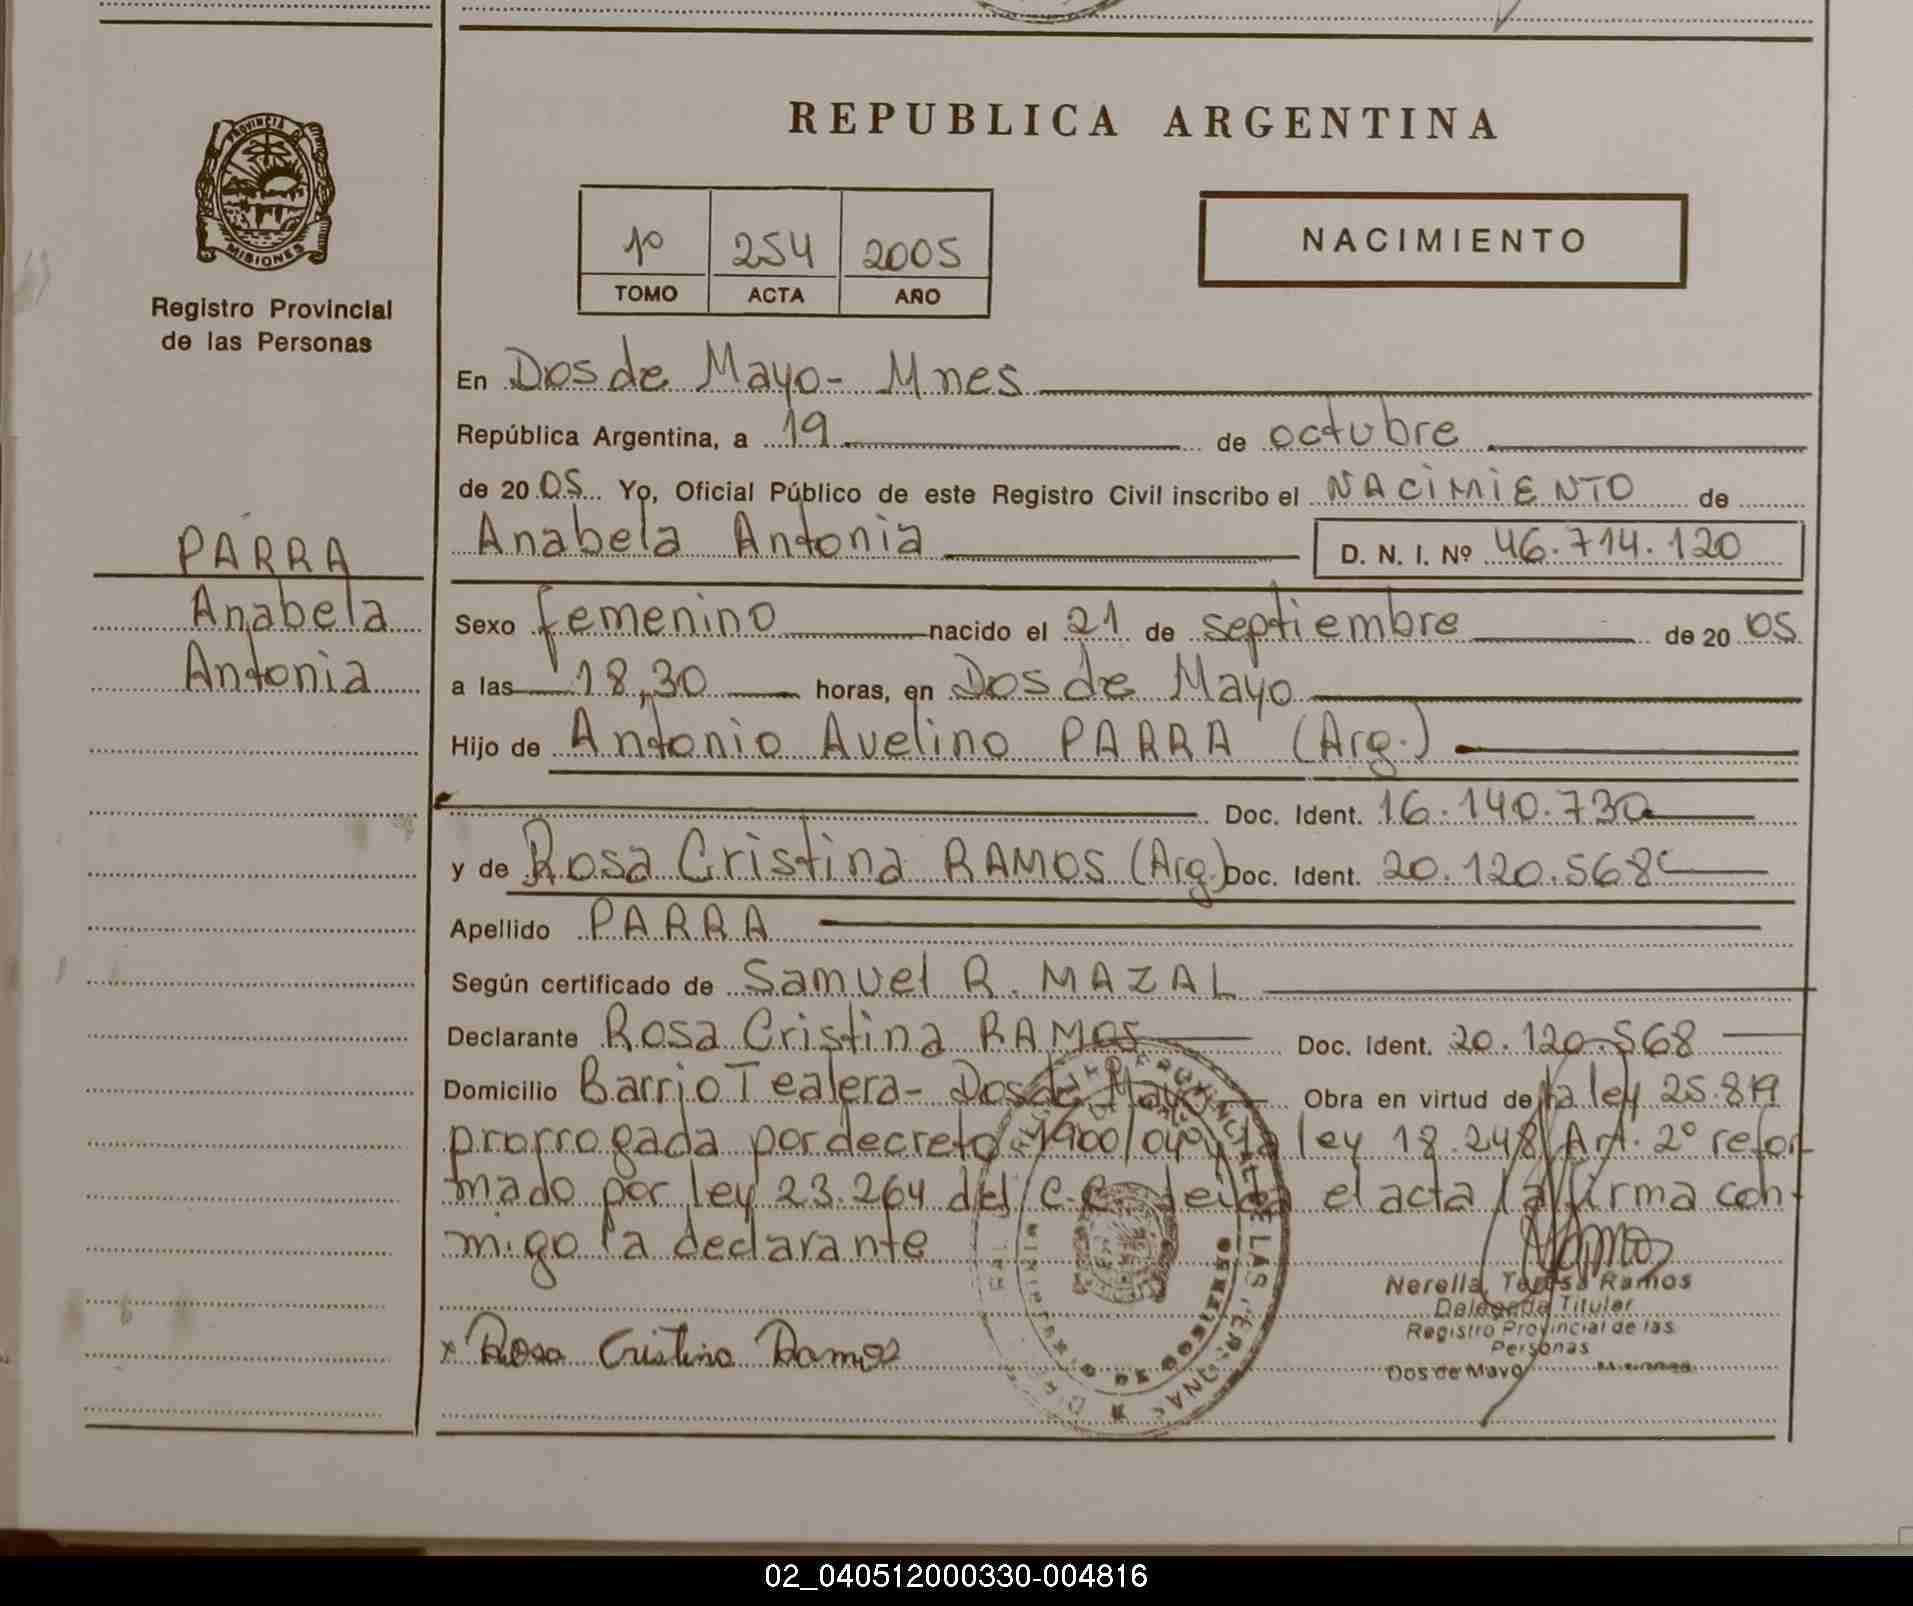 PROVINCIA DE
MISIONES
Registro Provincial
de las Personas
REPUBLICA ARGENTINA
1º 254 2005
TOMO ACTA AÑO
NACIMIENTO
En Dos de Mayo - Mnes
República Argentina, a 19 de octubre
de 20 05 Yo, Oficial Público de este Registro Civil inscribo el NACIMIENTO de
PARRA
Anabela Antonia D. N. I. Nº 46.714.120
Anabela
Sexo femenino nacido el 21 de septiembre de 20 05
Antonia
a las 18,30 horas, en Dos de Mayo
Hijo de Antonio Avelino PARRA (Arg.)
Doc. Ident. 16.140.730
y de Rosa Cristina RAMOS (Arg.) Doc. Ident. 20.120.568
Apellido PARRA
Según certificado de Samuel R. MAZAL
Declarante Rosa Cristina RAMOS Doc. Ident. 20.120.568
Domicilio Barrio Tealera - Dos de Mayo Obra en virtud de la ley 25.819
prorrogada por decreto 1900/04 y la ley 18.248 Art. 2º refor-
mado por ley 23.264 del C.C. leida el acta la firma con-
migo la declarante
Nerella Teresa Ramos
Delegada Titular
Registro Provincial de las
Personas
Dos de Mayo Misiones
x Rosa Cristina Ramos
02_040512000330-004816